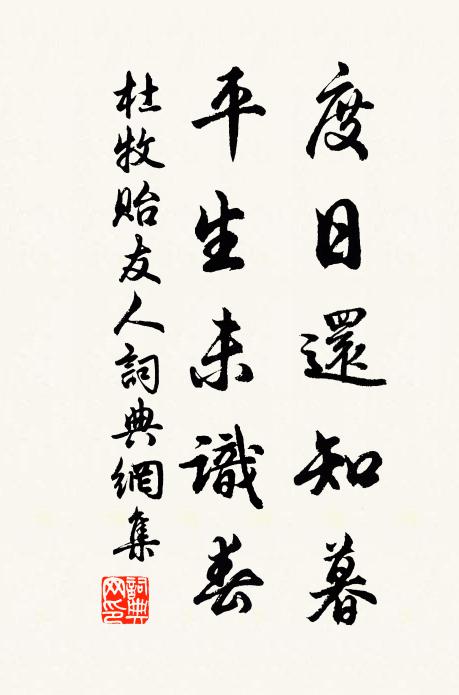 度日還知暮
平生未識春
杜牧貽友人詞典網集
詞典網印